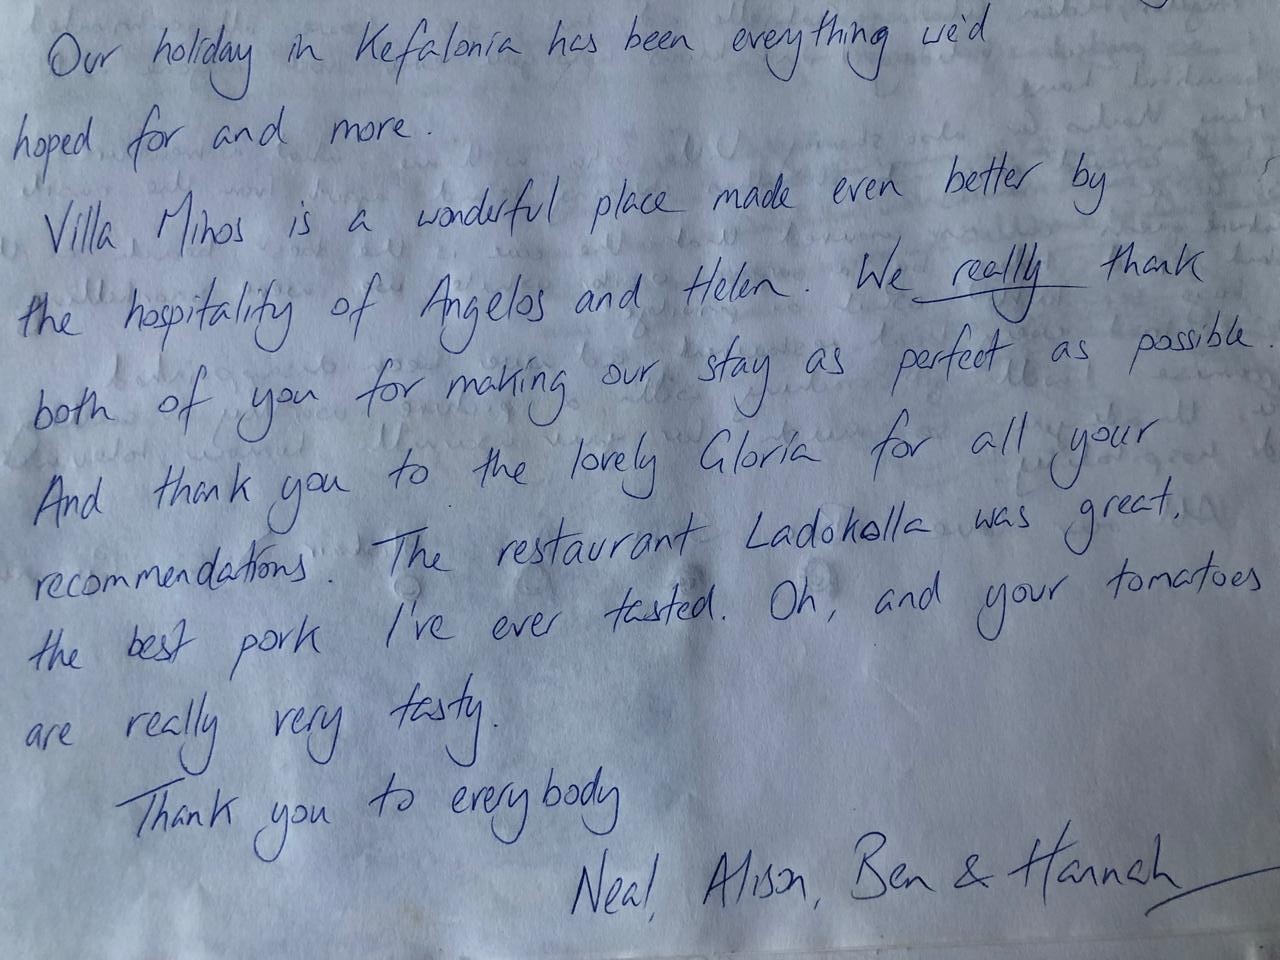 Our holiday in Kefalonia has been everything we'd
hoped for and more.
Villa Mihos is a wonderful place made even better by
the hospitality of Angelos and Helen. We really thank
both of you for making our stay as perfect as possible.
And thank you to the lovely Gloria for all your
recommendations. The restaurant Ladokolla was great,
the best pork I've ever tasted. Oh, and your tomatoes
are really very tasty.
Thank you to everybody
Neal, Alison, Ben & Hannah